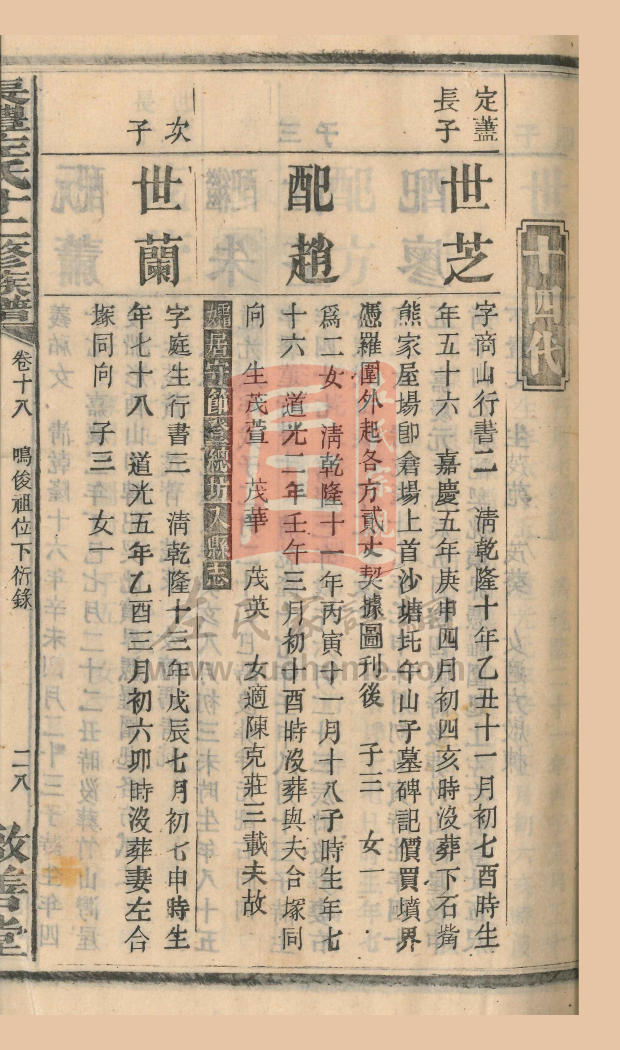 十四代
定藎
長子
世芝
字商山行書二　淸乾隆十年乙丑十一月初七酉時生
年五十六　嘉慶五年庚申四月初四亥時沒葬下石觜
熊家屋場卽倉場上首沙塘圫午山子墓碑記價買墳界
憑羅圍外起各方貳丈契據圖刊後　子三　女一
配趙
爲二女　淸乾隆十一年丙寅十一月十八子時生年七
十六　道光二年壬午三月初十酉時沒葬與夫合塚同
向　生茂萱　茂華　茂英　女適陳克莊三載夫故
孀居守節 總坊入縣志
次
子
世蘭
字庭生行書三　淸乾隆十三年戊辰七月初七申時生
年七十八　道光五年乙酉三月初六卯時沒葬妻左合
塚同向　子三　女一
氏十二修族譜
卷十八　鳴俊祖位下衍錄
二八
敦善堂
www.xuehome.com